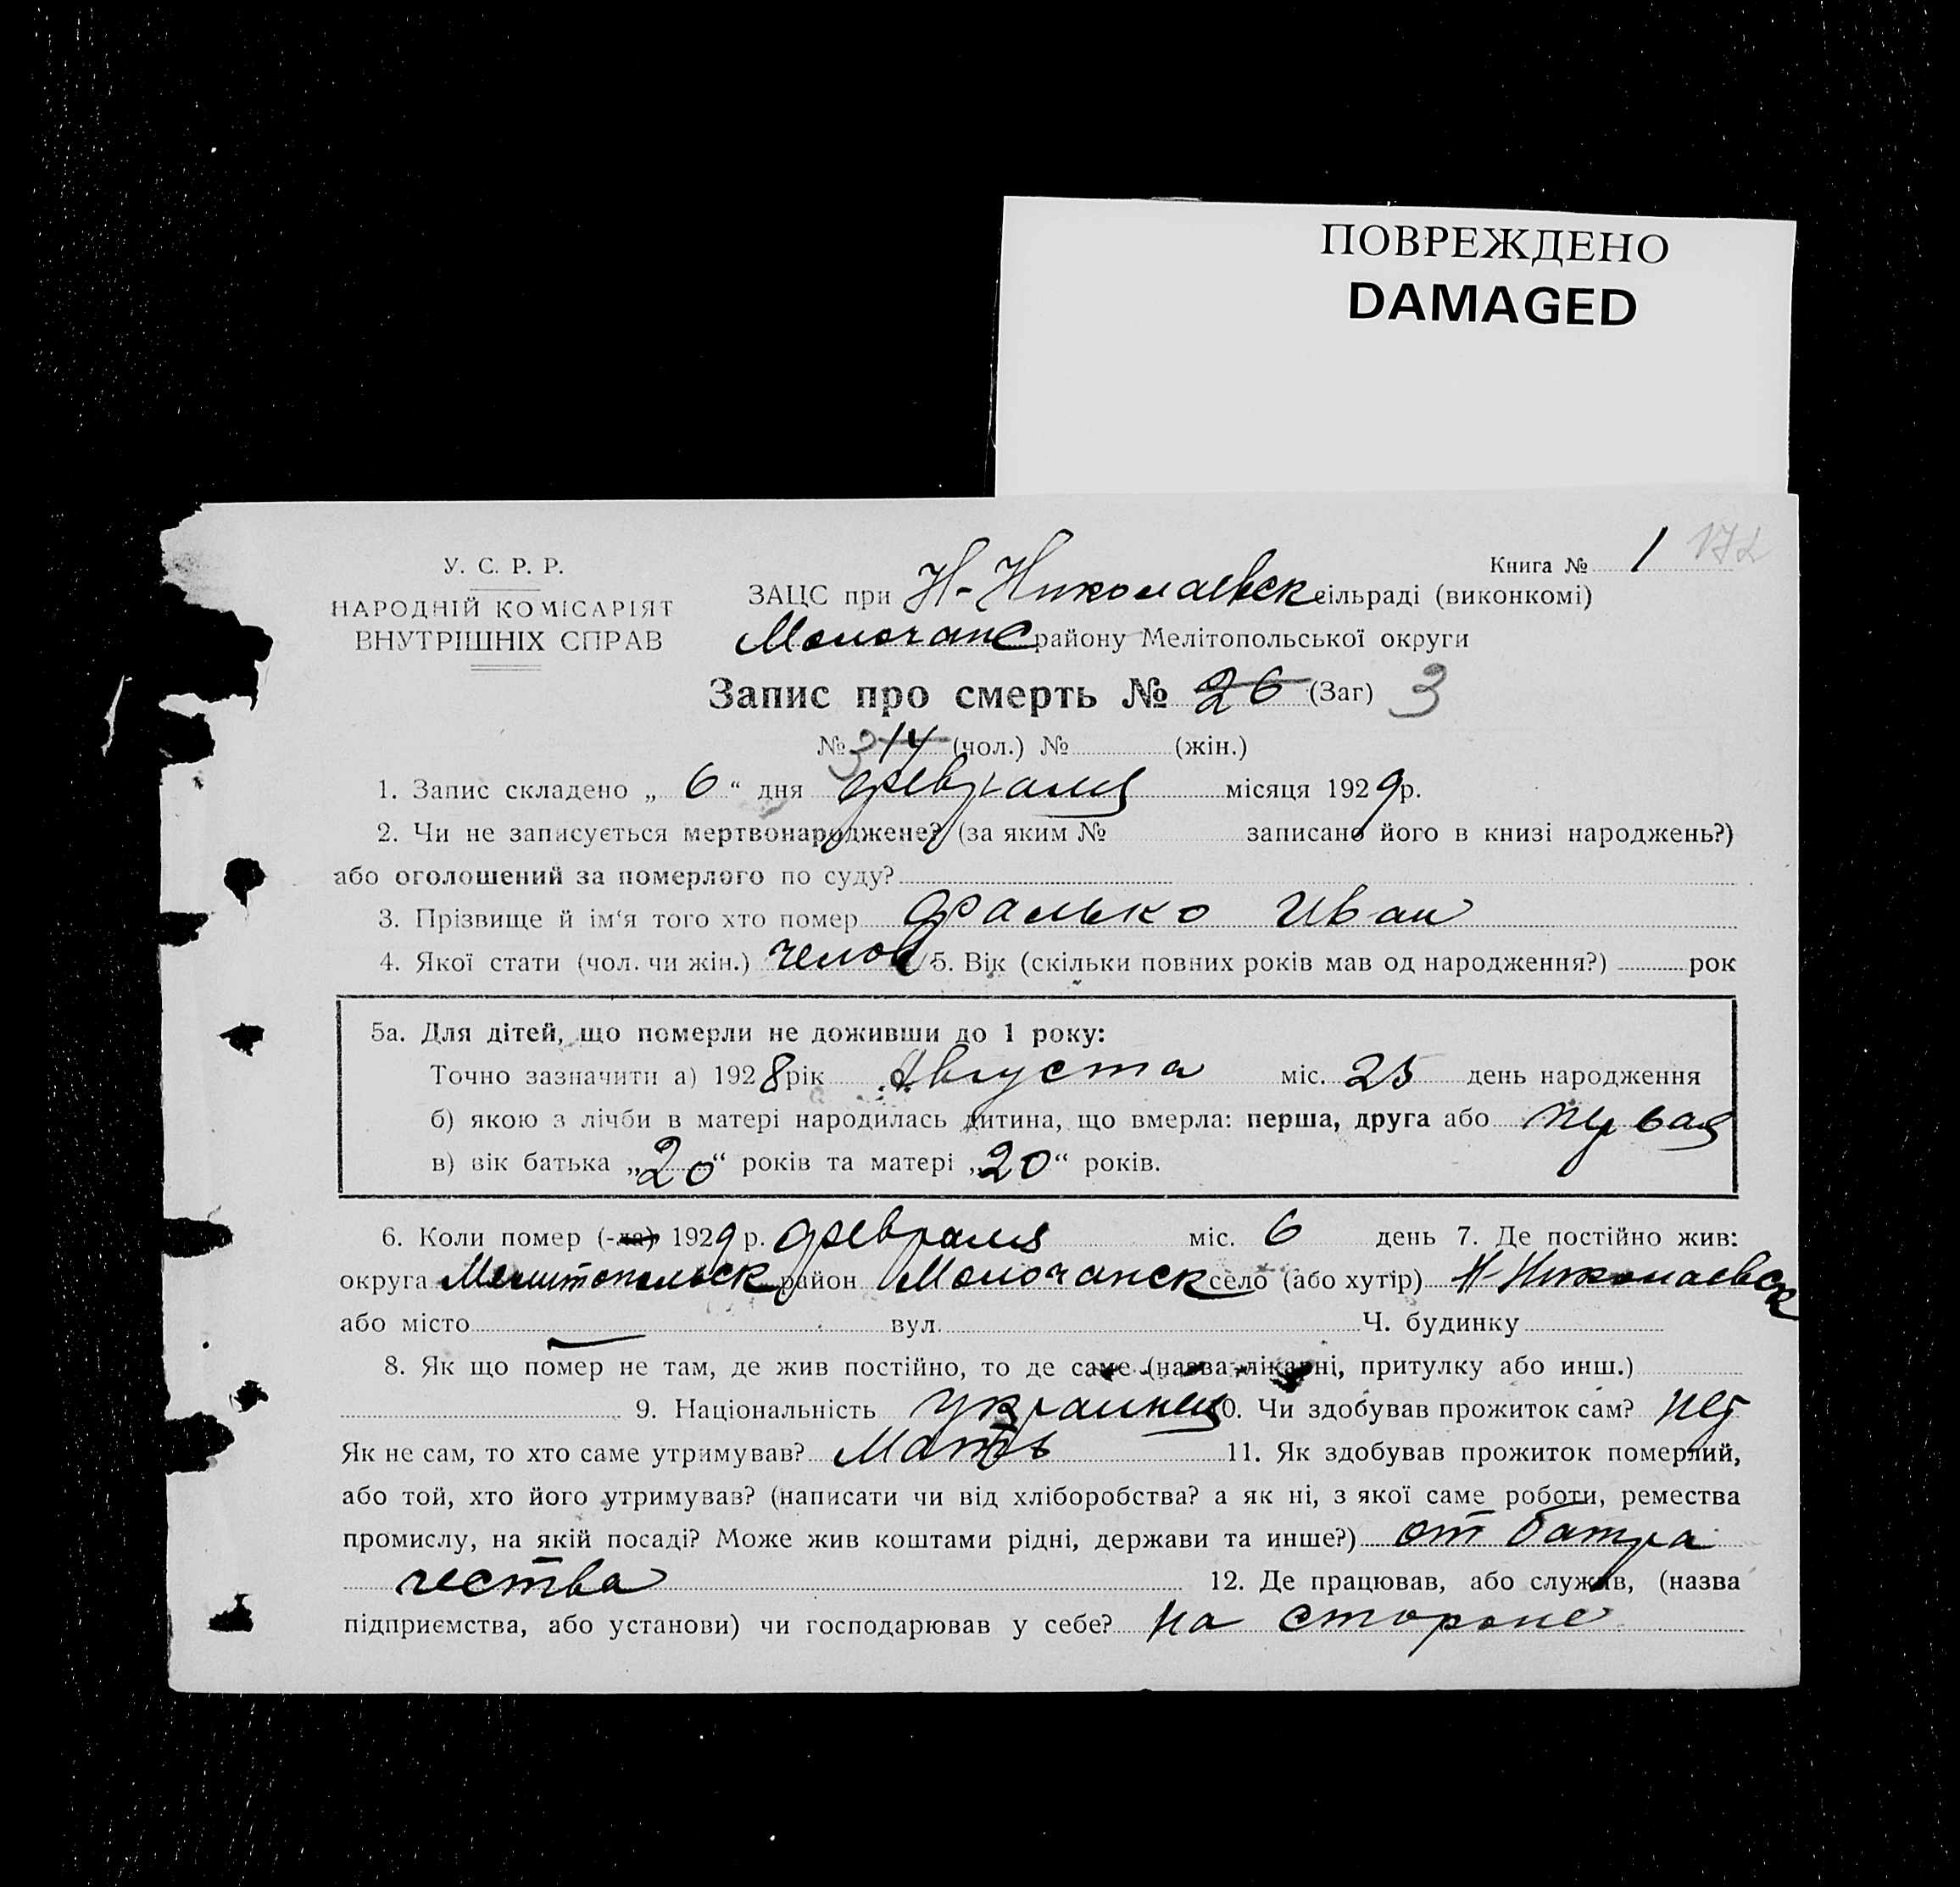 ПОВРЕЖДЕНО
DAMAGED
У. С. Р. Р.
НАРОДНІЙ КОМІСАРІЯТ
ВНУТРІШНІХ СПРАВ
Книга № 1 172
ЗАЦС при Н-Николаевск сільраді (виконкомі)
Молочанс району Мелітопольської округи
Запис про смерть № 26 (Заг) 3
№ 3 14 (чол.) № (жін.)
1. Запис складено „ 6 “ дня февраля місяця 1929 р.
2. Чи не записується мертвонароджене? (за яким № записано його в книзі народжень?)
або оголошений за померлого по суду?
3. Прізвище й ім‘я того хто помер Фалько Иван
4. Якої статі (чол. чи жін.) челов 5. Вік (скільки повних років мав од народження?) рок
5а. Для дітей, що померли не доживши до 1 року:
Точно зазначити а) 1928 рік Августа міс. 25 день народження
б) якою з лічби в матері народилась дитина, що вмерла: перша, друга або первая
в) вік батька „20“ років та матері „20“ років.
6. Коли помер (-ла) 1929 р. февраля міс. 6 день 7. Де постійно жив:
округа Мелитопольск район Молочанск село (або хутір) Н-Николаевск
або місто вул. Ч. будинку
8. Як що помер не там, де жив постійно, то де саме (назва лікарні, притулку або инш.)
9. Національність украинец 10. Чи здобував прожиток сам? нет
Як не сам, то хто саме утримував? Мать 11. Як здобував прожиток померлий,
або той, хто його утримував? (написати чи від хліборобства? а як ні, з якої саме роботи, ремества
промислу, на якій посаді? Може жив коштами рідні, держави та инше?) от батра
чества 12. Де працював, або служив, (назва
підприємства, або установи) чи господарював у себе? на стороне